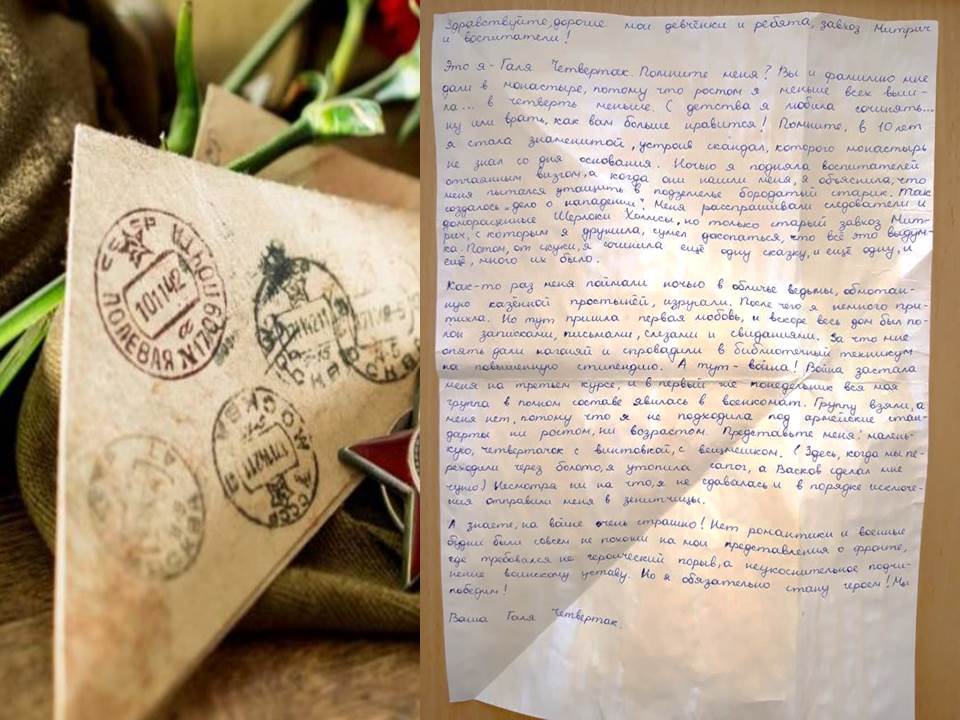 СССР
ПОЛЕВАЯ ПОЧТА
10 11 42
Здравствуйте, дорогие мои девчёнки и ребята, завхоз Митрич
и воспитатели!
Это я - Галя Четвертак. Помните меня? Вы и фамилию мне
дали в монастыре, потому что ростом я меньше всех выш-
ла... в четверть меньше. С детства я любила сочинять...
ну или врать, как вам больше нравится! Помните, в 10 лет
я стала знаменитой, устроив скандал, которого монастырь
не знал со дня основания. Ночью я подняла воспитателей
отчаянным визгом, а когда они нашли меня, я объяснила, что
меня пытался утащить в подземелье бородатый старик. Так
создалось "дело о нападении". Меня расспрашивали следователи и
доморощенные Шерлоки Холмсы, но только старый завхоз Мит-
рич, с которым я дружила, сумел докопаться, что всё это выдум-
ка. Потом, от скуки, я сочинила ещё одну сказку, и ещё одну, и
ещё, много их было.
Как-то раз меня поймали ночью в обличье ведьмы, обмотан-
ную казённой простынёй, изругали. После чего я немного при-
тихла. Но тут пришла первая любовь, и вскоре весь дом был по-
лон записками, письмами, слезами и свиданиями. За что мне
опять дали нагоняй и спровадили в библиотечный техникум
на повышенную стипендию. А тут - война! Война застала
меня на третьем курсе, и в первый же понедельник вся моя
группа в полном составе явилась в военкомат. Группу взяли, а
меня нет, потому что я не подходила под армейские стан-
дарты ни ростом, ни возрастом. Представьте меня: малень-
кую, четвертачок с винтовкой, с вещмешком. (Здесь, когда мы пе-
реходили через болото, я утопила сапог, а Васков сделал мне
чуню) Несмотря ни на что, я не сдавалась и в порядке исключе-
ния отправили меня в зенитчицы.
А знаете, на войне очень страшно! Нет романтики и военные
будни были совсем не похожи на мои представления о фронте,
где требовался не героический порыв, а неукоснительное подчи-
нение воинскому уставу. Но я обязательно стану героем! Мы
победим!
Ваша Галя Четвертак.